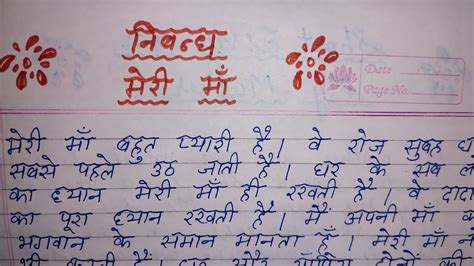 निबन्ध
मेरी माँ
Date
Page No.
मेरी माँ बहुत प्यारी है। वे रोज सुबह
सबसे पहले उठ जाती है। घर के सब
का ध्यान मेरी माँ ही रखती है। वे दादा
का पूरा ध्यान रखती है। मैं अपनी माँ
भगवान के समान मानता हूँ। मेरी माँ